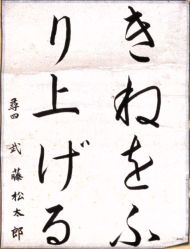 きねをふ
り上げる
尋四 武藤松太郎